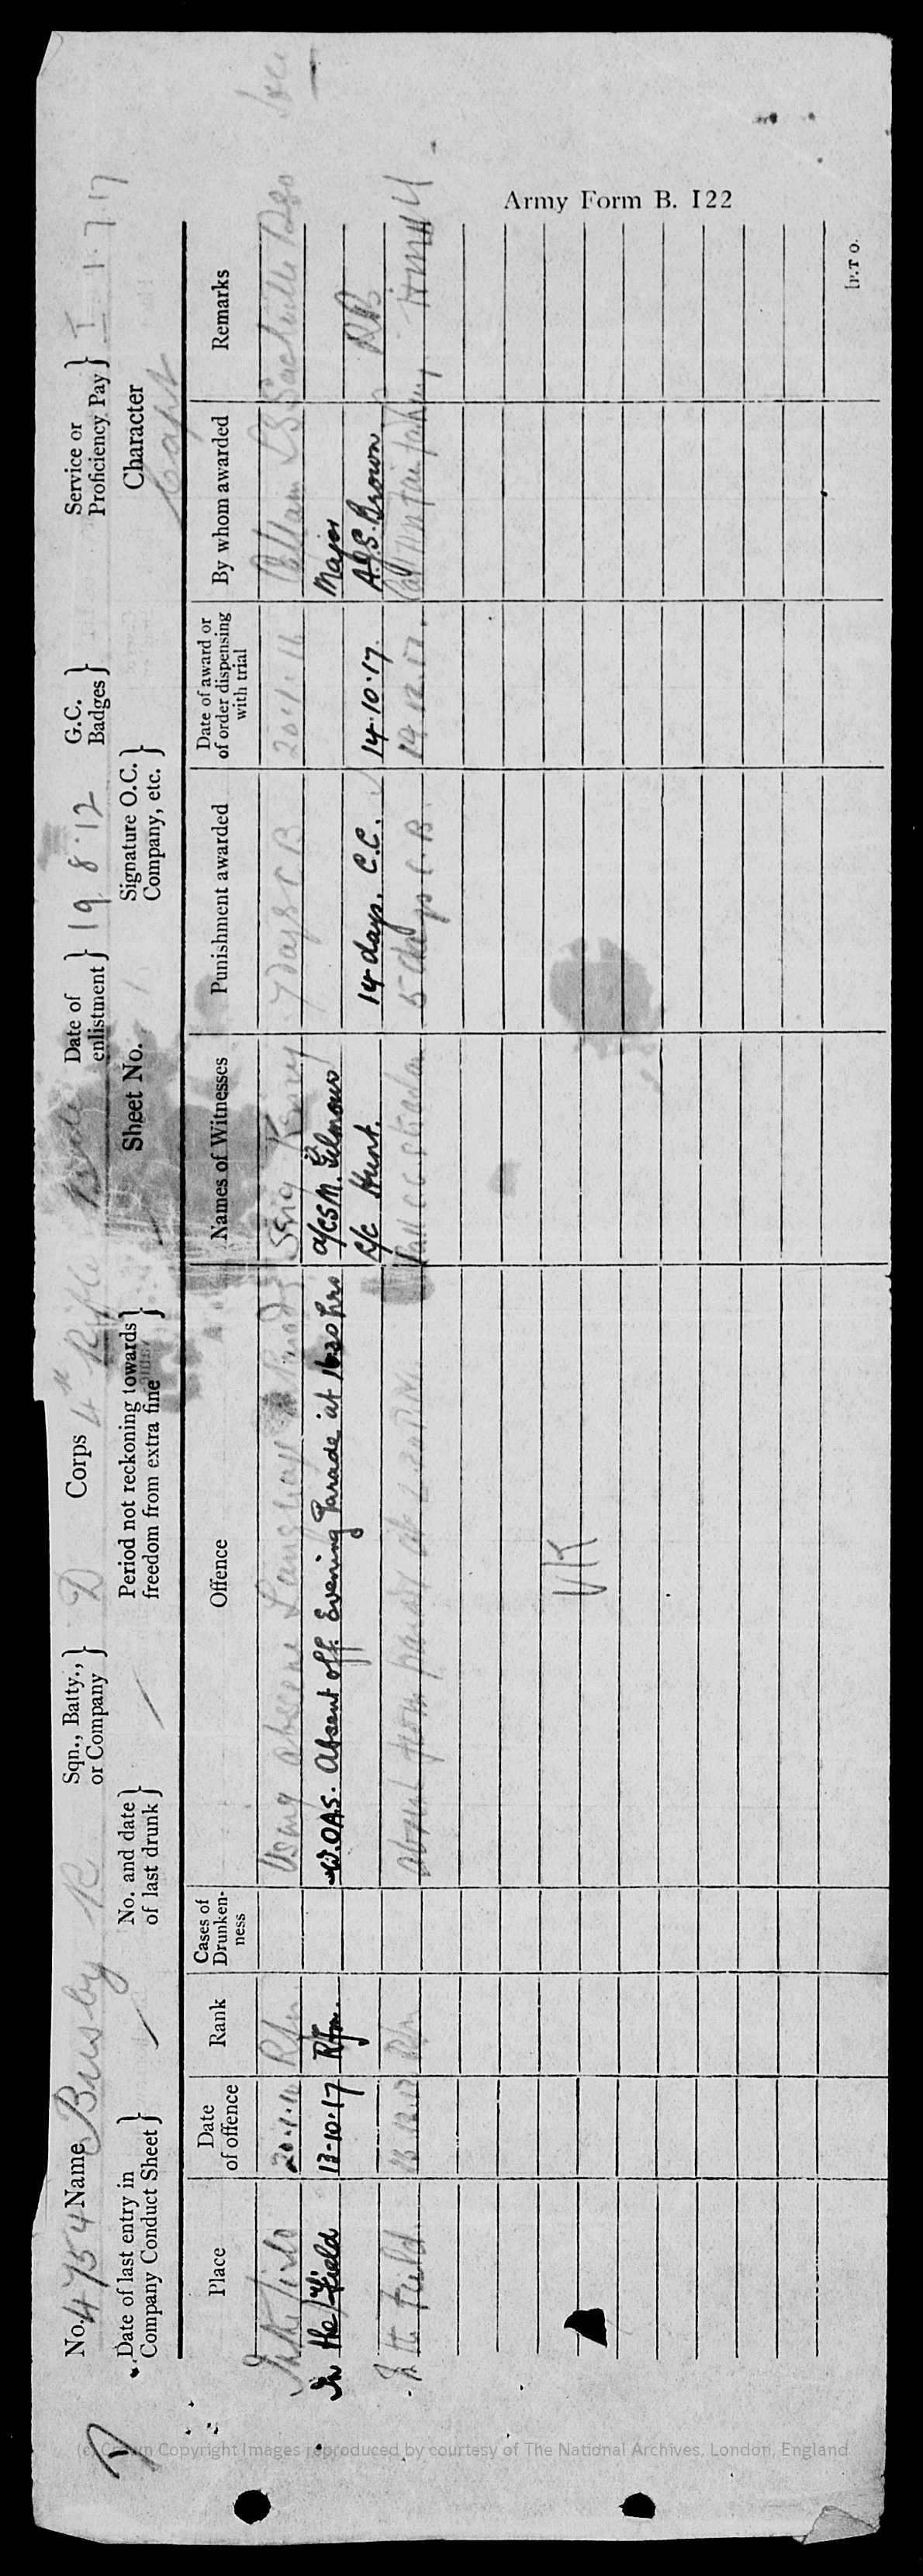 Army Form B. 122
No. 4754 Name Busby R Sqn., Batty., or Company } D Corps 4th Rifle Brigade Date of enlistment } 19 8.12 G.C. Badges } Service or Proficiency Pay } I 1.7.17
Date of last entry in Company Conduct Sheet } No. and date of last drunk } Period not reckoning towards freedom from extra fine } Sheet No. Signature O.C. Company, etc. } Character
Capt
Place Date of offence Rank Cases of Drunken-ness Offence Names of Witnesses Punishment awarded Date of award or of order dispensing with trial By whom awarded Remarks
In the Field 20.1.16 Rfn Using obscene Language Serg 7 Days C B 20.1.16 Captain
In the Field 13.10.17 Rfm. W.O.A.S. Absent off Evening Parade at 1630 hrs a/CSM. Gilmour Major
L/C Hunt. 14 days. C.C. 14.10.17. A.G.S. Brown RB
In the Field Rfn absent from parade at 5 days C.B. 14.12.17.
VK
[P.T.O.
(c) Crown Copyright Images reproduced by courtesy of The National Archives, London, England